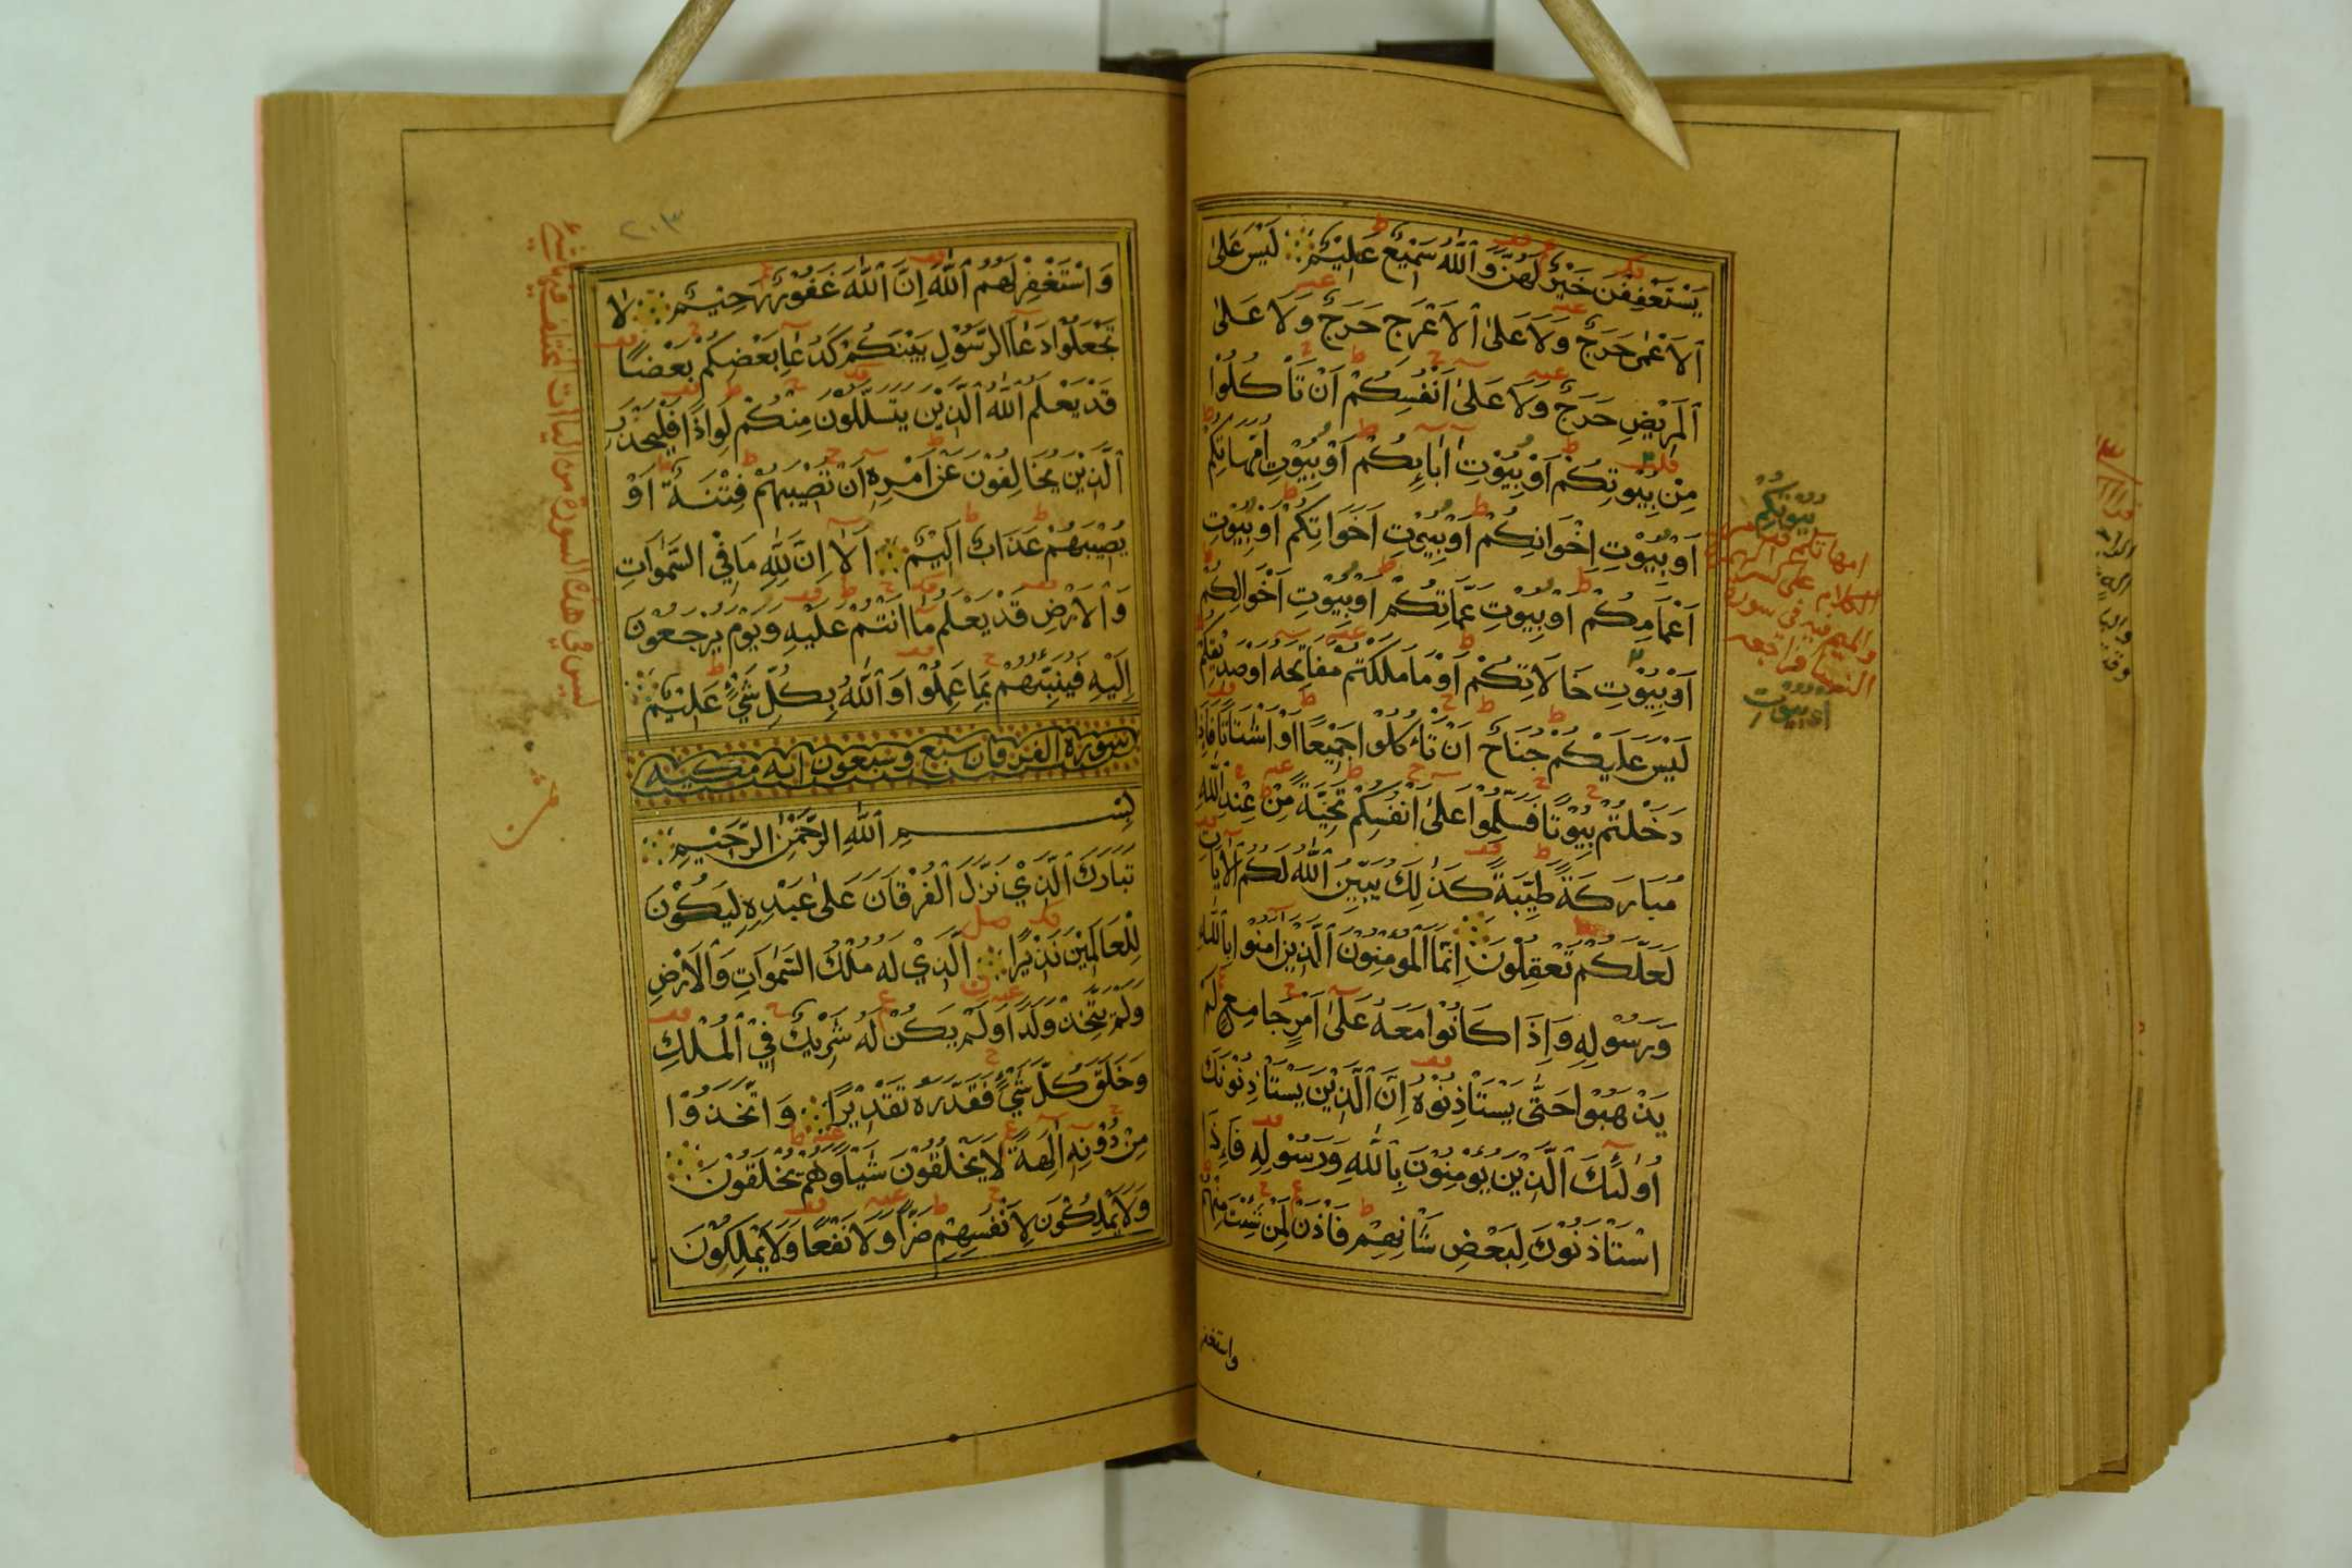 يَسْتَعْفِفْنَ خَيْرٌ لَهُنَّ وَٱللَّهُ سَمِيْعٌ عَلِيْمٌ لَيْسَ عَلَى
ٱلْاَعْمٰى حَرَجٌ وَلَا عَلَى ٱلْاَعْرَجِ حَرَجٌ وَلَا عَلَى
ٱلْمَرِيْضِ حَرَجٌ وَلَا عَلٰى اَنْفُسِكُمْ اَنْ تَأْكُلُوْا
مِنْ بِيُوْتِكُمْ اَوْ بِيُوْتِ اٰبَائِكُمْ اَوْ بِيُوْتِ اُمَّهَاتِكُمْ
اَوْ بِيُوْتِ اِخْوَانِكُمْ اَوْ بِيُوْتِ اَخَوَاتِكُمْ اَوْ بِيُوْتِ
اَعْمَامِكُمْ اَوْ بِيُوْتِ عَمَّاتِكُمْ اَوْ بِيُوْتِ اَخْوَالِكُمْ
اَوْ بِيُوْتِ خَالَاتِكُمْ اَوْ مَا مَلَكْتُمْ مَفَاتِحَهُ اَوْ صَدِيْقِكُمْ
لَيْسَ عَلَيْكُمْ جُنَاحٌ اَنْ تَأْكُلُوْا جَمِيْعًا اَوْ اَشْتَاتًا فَاِذَا
دَخَلْتُمْ بِيُوْتًا فَسَلِّمُوْا عَلٰى اَنْفُسِكُمْ تَحِيَّةً مِنْ عِنْدِ ٱللَّهِ
مُبَارَكَةً طَيِّبَةً كَذٰلِكَ يُبَيِّنُ ٱللَّهُ لَكُمُ ٱلْاٰيَاتِ
لَعَلَّكُمْ تَعْقِلُوْنَ اِنَّمَا ٱلْمُؤْمِنُوْنَ ٱلَّذِيْنَ اٰمَنُوْا بِٱللَّهِ
وَرَسُوْلِهِ وَاِذَا كَانُوْا مَعَهُ عَلٰى اَمْرٍ جَامِعٍ لَمْ
يَذْهَبُوْا حَتّٰى يَسْتَأْذِنُوْهُ اِنَّ ٱلَّذِيْنَ يَسْتَأْذِنُوْنَكَ
اُولٰئِكَ ٱلَّذِيْنَ يُؤْمِنُوْنَ بِٱللَّهِ وَرَسُوْلِهِ فَاِذَا
اسْتَأْذَنُوْكَ لِبَعْضِ شَأْنِهِمْ فَأْذَنْ لِمَنْ شِئْتَ مِنْهُمْ
واستغفر
بيوتكم
او بيوت
٢٠٣
وَاسْتَغْفِرْ لَهُمُ ٱللَّهَ اِنَّ ٱللَّهَ غَفُوْرٌ رَحِيْمٌ لَا
تَجْعَلُوْا دُعَآءَ الرَّسُوْلِ بَيْنَكُمْ كَدُعَآءِ بَعْضِكُمْ بَعْضًا
قَدْ يَعْلَمُ ٱللَّهُ ٱلَّذِيْنَ يَتَسَلَّلُوْنَ مِنْكُمْ لِوَاذًا فَلْيَحْذَرِ
ٱلَّذِيْنَ يُخَالِفُوْنَ عَنْ اَمْرِهِ اَنْ تُصِيْبَهُمْ فِتْنَةٌ اَوْ
يُصِيْبَهُمْ عَذَابٌ اَلِيْمٌ اَلَا اِنَّ لِلَّهِ مَا فِي السَّمٰوَاتِ
وَٱلْاَرْضِ قَدْ يَعْلَمُ مَا اَنْتُمْ عَلَيْهِ وَيَوْمَ يُرْجَعُوْنَ
اِلَيْهِ فَيُنَبِّئُهُمْ بِمَا عَمِلُوْا وَٱللَّهُ بِكُلِّ شَيْءٍ عَلِيْمٌ
سورة الفرقان سبع وسبعون اية مكية
بِسْمِ ٱللَّهِ الرَّحْمٰنِ الرَّحِيْمِ
تَبَارَكَ ٱلَّذِيْ نَزَّلَ ٱلْفُرْقَانَ عَلٰى عَبْدِهِ لِيَكُوْنَ
لِلْعَالَمِيْنَ نَذِيْرًا ٱلَّذِيْ لَهُ مُلْكُ السَّمٰوَاتِ وَٱلْاَرْضِ
وَلَمْ يَتَّخِذْ وَلَدًا وَلَمْ يَكُنْ لَهُ شَرِيْكٌ فِي ٱلْمُلْكِ
وَخَلَقَ كُلَّ شَيْءٍ فَقَدَّرَهُ تَقْدِيْرًا وَاتَّخَذُوْا
مِنْ دُوْنِهِ اٰلِهَةً لَا يَخْلُقُوْنَ شَيْأً وَهُمْ يُخْلَقُوْنَ
وَلَا يَمْلِكُوْنَ لِاَنْفُسِهِمْ ضَرًّا وَلَا نَفْعًا وَلَا يَمْلِكُوْنَ